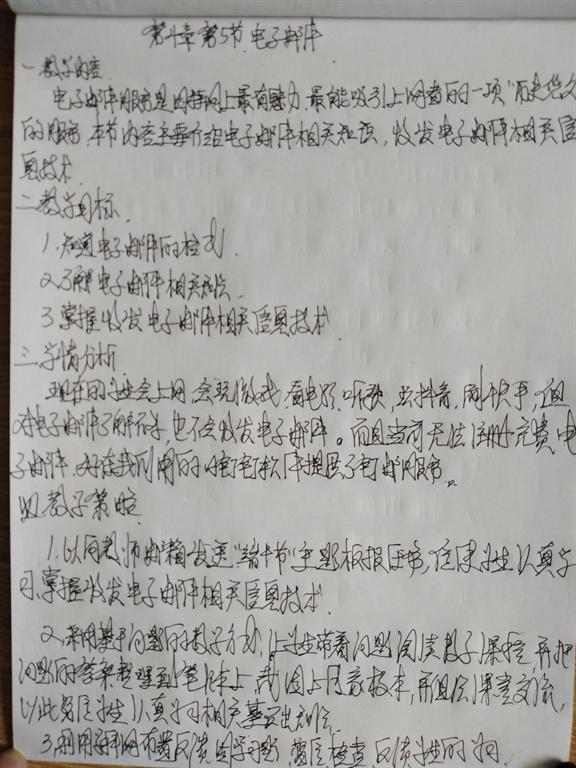 第十章第5节 电子邮件
一 教学内容
电子邮件服务是因特网上最有魅力、最能吸引上网者的一项"历史悠久"
的服务,本节内容主要介绍电子邮件相关知识,收发电子邮件相关信
息技术.
二 教学目标.
1.知道电子邮件的格式.
2.了解电子邮件相关知识.
3.掌握收发电子邮件相关信息技术.
三.学情分析.
现在的学生会上网,会玩游戏,看电影,听歌,出抖音,用快手,但
对电子邮件了解不多,也不会收发电子邮件。而且当前无法注册免费电
子邮件,好在我们用的 软件提供了电子邮件服务。
四 教学策略
1.以向老师邮箱发送"端午节"主题板报任务,促使学生认真学
习、掌握收发电子邮件相关信息技术.
2.采用基于问题的教学方式,让学生带着问题阅读教学课程,再把
问题的答案整理到笔记本上, 并且 课堂交流,
以此 学生认真学习相关基础知识.
3.利用 检查、反馈学生的学习.